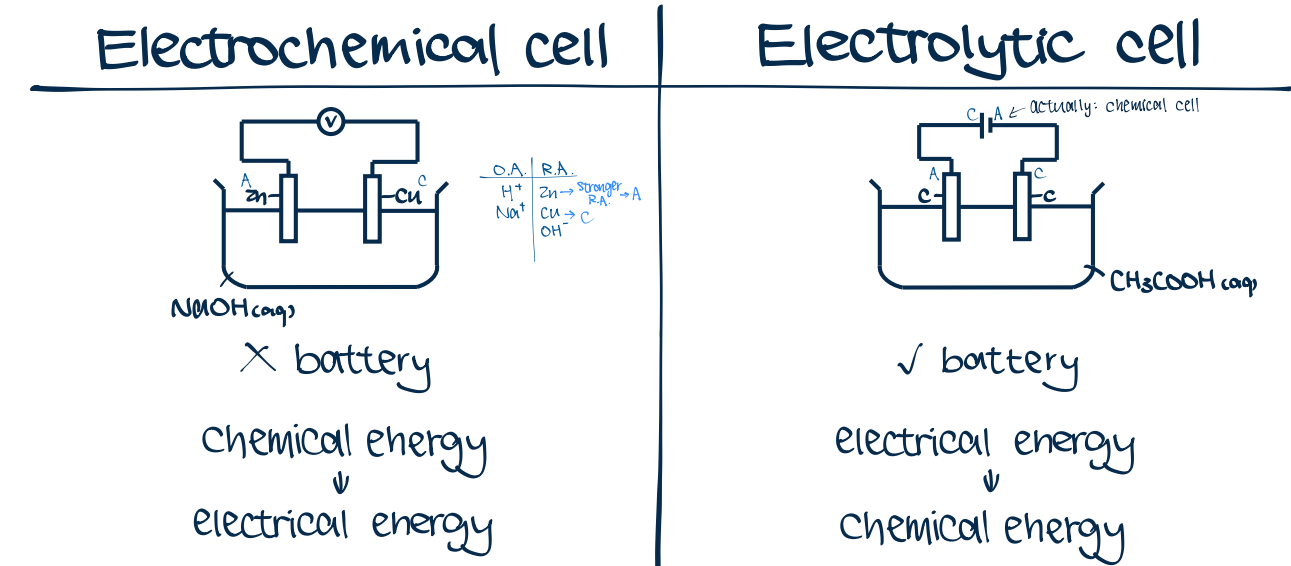 Electrochemical cell
V
A
Zn
Cu
C
NaOH(aq)
O.A. R.A.
H⁺ Zn → stronger R.A. → A
Na⁺ Cu → C
OH⁻
✗ battery
chemical energy
↓
electrical energy
Electrolytic cell
C A ← actually: chemical cell
A
C
C
C
CH₃COOH(aq)
✓ battery
electrical energy
↓
chemical energy